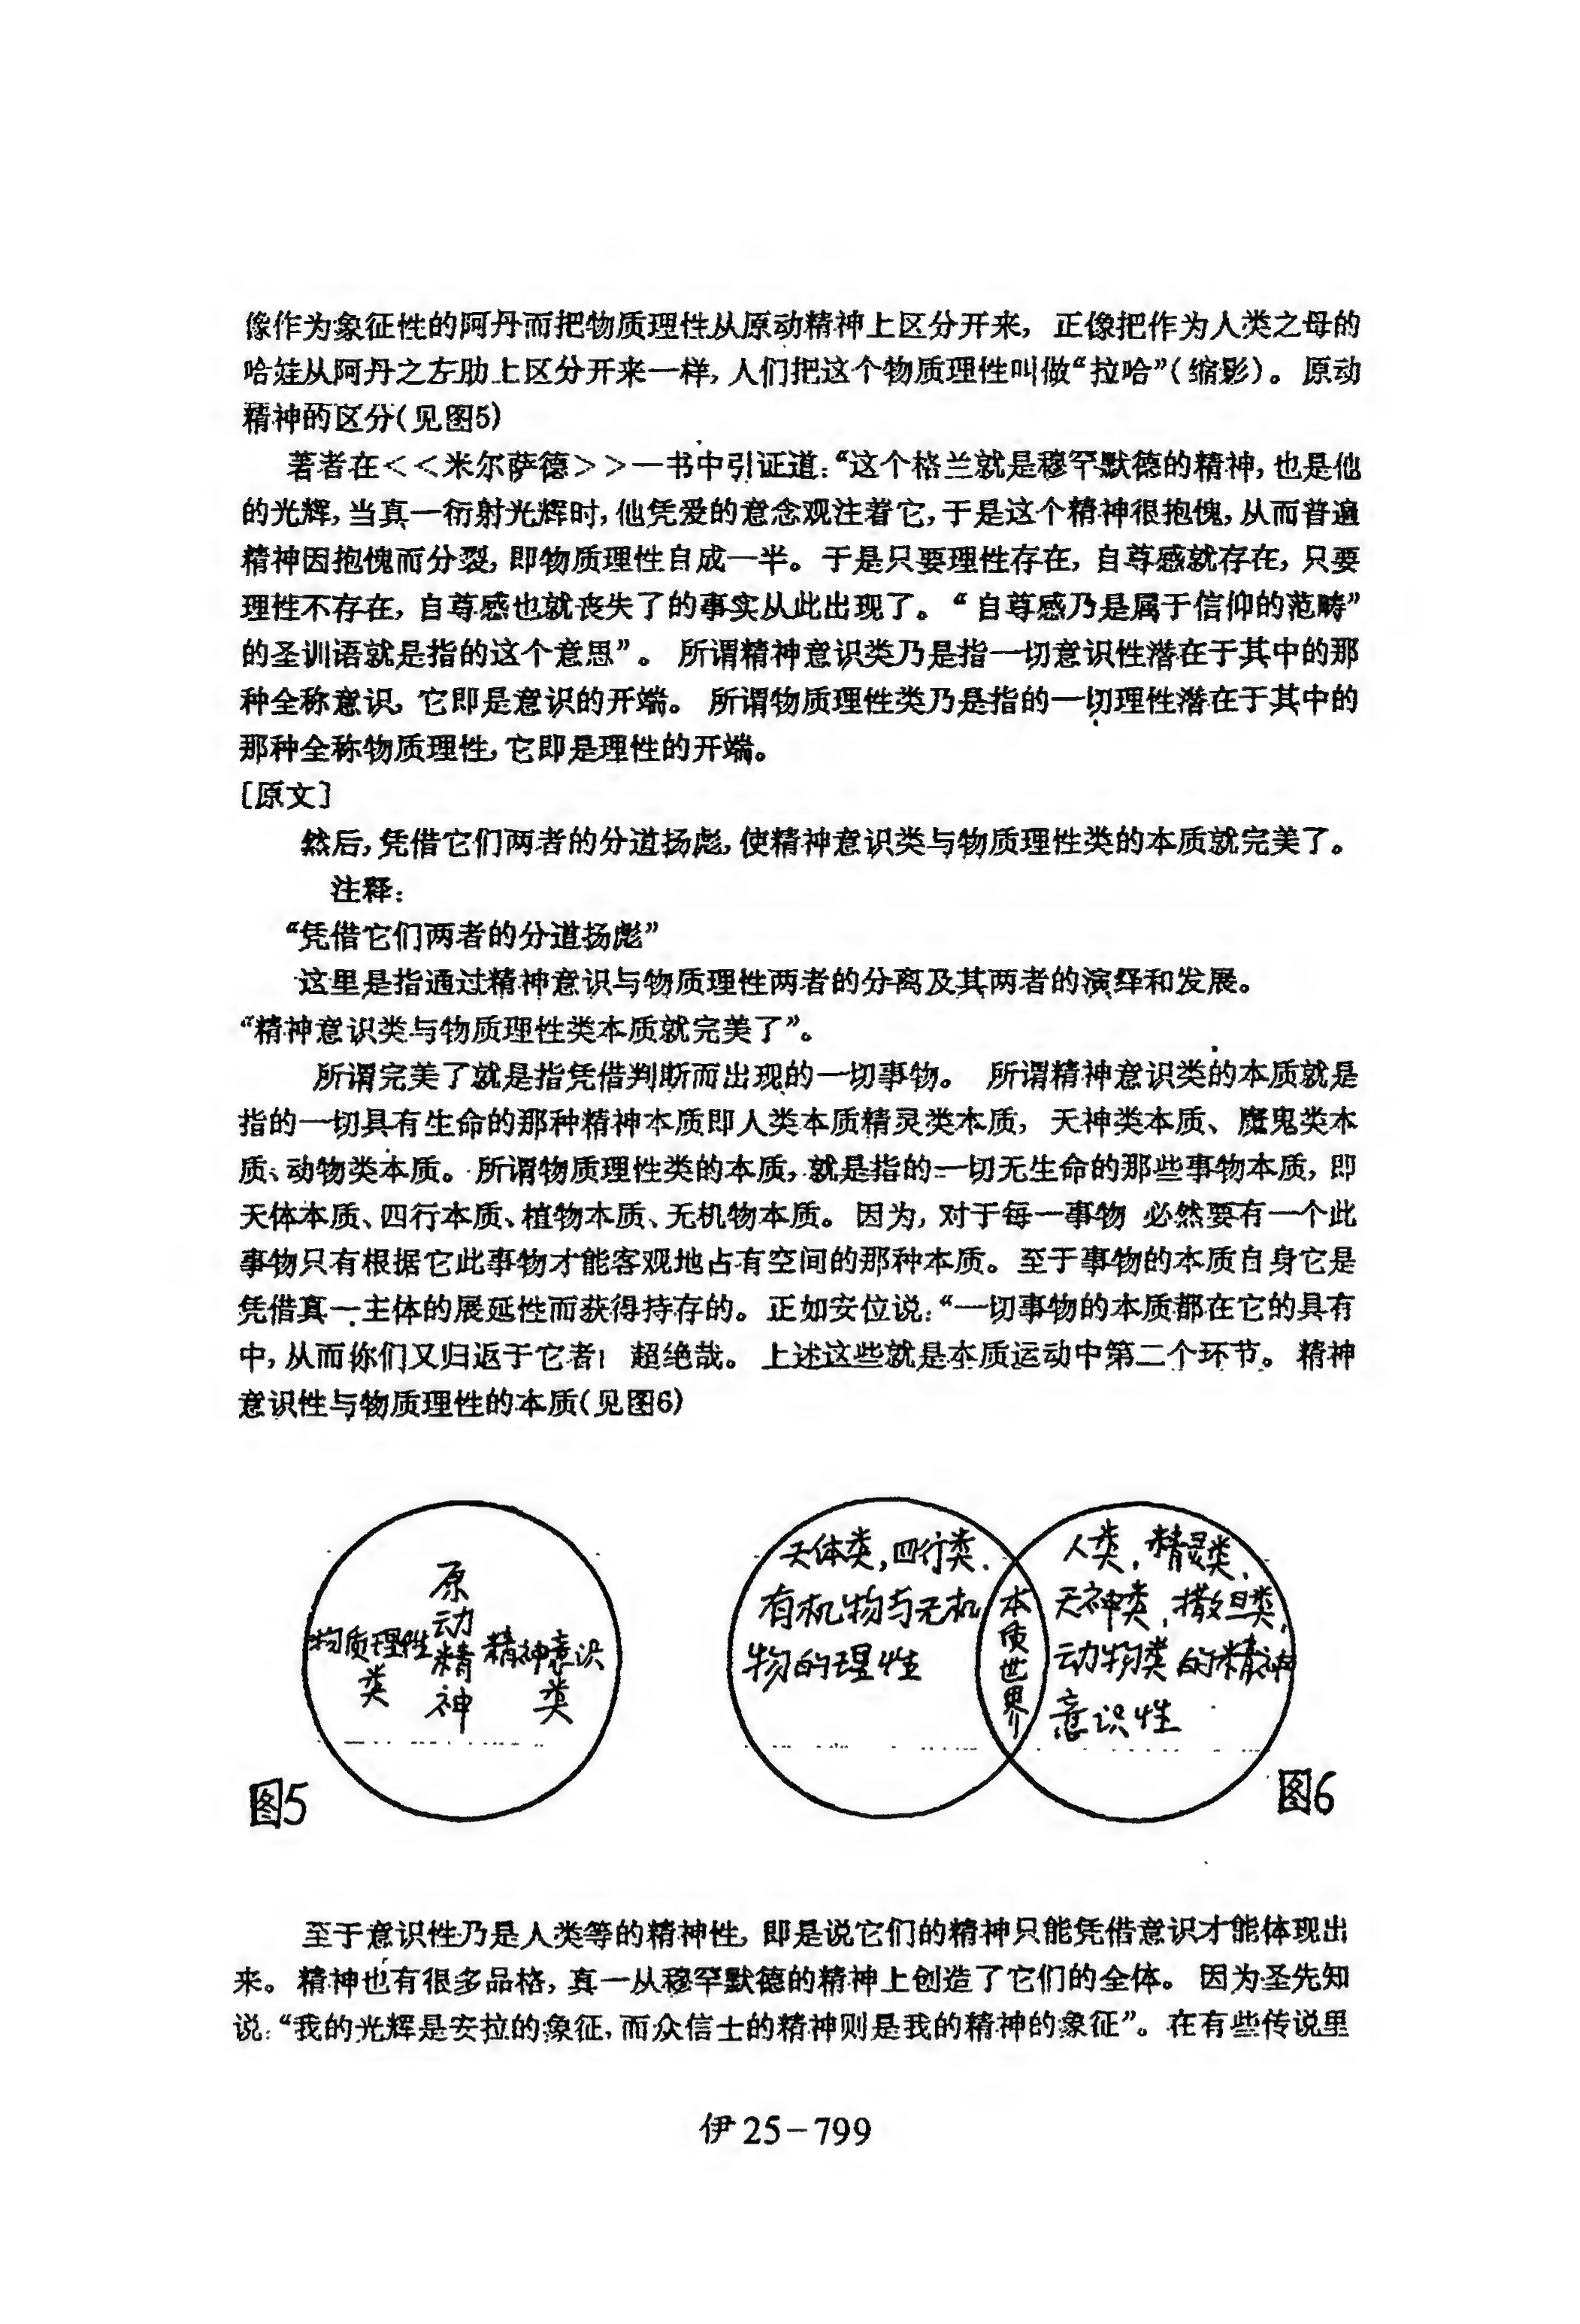 像作为象征性的阿丹而把物质理性从原动精神上区分开来, 正像把作为人类之母的
哈娃从阿丹之左肋上区分开来一样,人们把这个物质理性叫做“拉哈”(缩影)。原动
精神的区分(见图5)
著者在<<米尔萨德>>一书中引证道:“这个格兰就是穆罕默德的精神,也是他
的光辉,当真一衍射光辉时,他凭爱的意念观注着它,于是这个精神很抱愧,从而普遍
精神因抱愧而分裂,即物质理性自成一半。于是只要理性存在,自尊感就存在,只要
理性不存在,自尊感也就丧失了的事实从此出现了。“自尊感乃是属于信仰的范畴”
的圣训语就是指的这个意思”。所谓精神意识类乃是指一切意识性潜在于其中的那
种全称意识,它即是意识的开端。所谓物质理性类乃是指的一切理性潜在于其中的
那种全称物质理性,它即是理性的开端。
[原文]
然后,凭借它们两者的分道扬彪,使精神意识类与物质理性类的本质就完美了。
注释:
“凭借它们两者的分道扬彪”
这里是指通过精神意识与物质理性两者的分离及其两者的演绎和发展。
“精神意识类与物质理性类本质就完美了”。
所谓完美了就是指凭借判断而出现的一切事物。所谓精神意识类的本质就是
指的一切具有生命的那种精神本质即人类本质精灵类本质, 天神类本质、魔鬼类本
质、动物类本质。所谓物质理性类的本质,就是指的一切无生命的那些事物本质,即
天体本质、四行本质、植物本质、无机物本质。因为,对于每一事物 必然要有一个此
事物只有根据它此事物才能客观地占有空间的那种本质。至于事物的本质自身它是
凭借真一主体的展延性而获得持存的。正如安位说:“一切事物的本质都在它的具有
中,从而你们又归返于它者! 超绝哉。上述这些就是本质运动中第二个环节。精神
意识性与物质理性的本质(见图6)
原动精神
物质理性类
精神意识类
图5
天体类,四行类.
有机物与无机
物的理性
本质世界
人类,精灵类,
天神类,撒旦类,
动物类的精神
意识性
图6
至于意识性乃是人类等的精神性,即是说它们的精神只能凭借意识才能体现出
来。精神也有很多品格,真一从穆罕默德的精神上创造了它们的全体。因为圣先知
说:“我的光辉是安拉的象征,而众信士的精神则是我的精神的象征”。在有些传说里
伊25-799